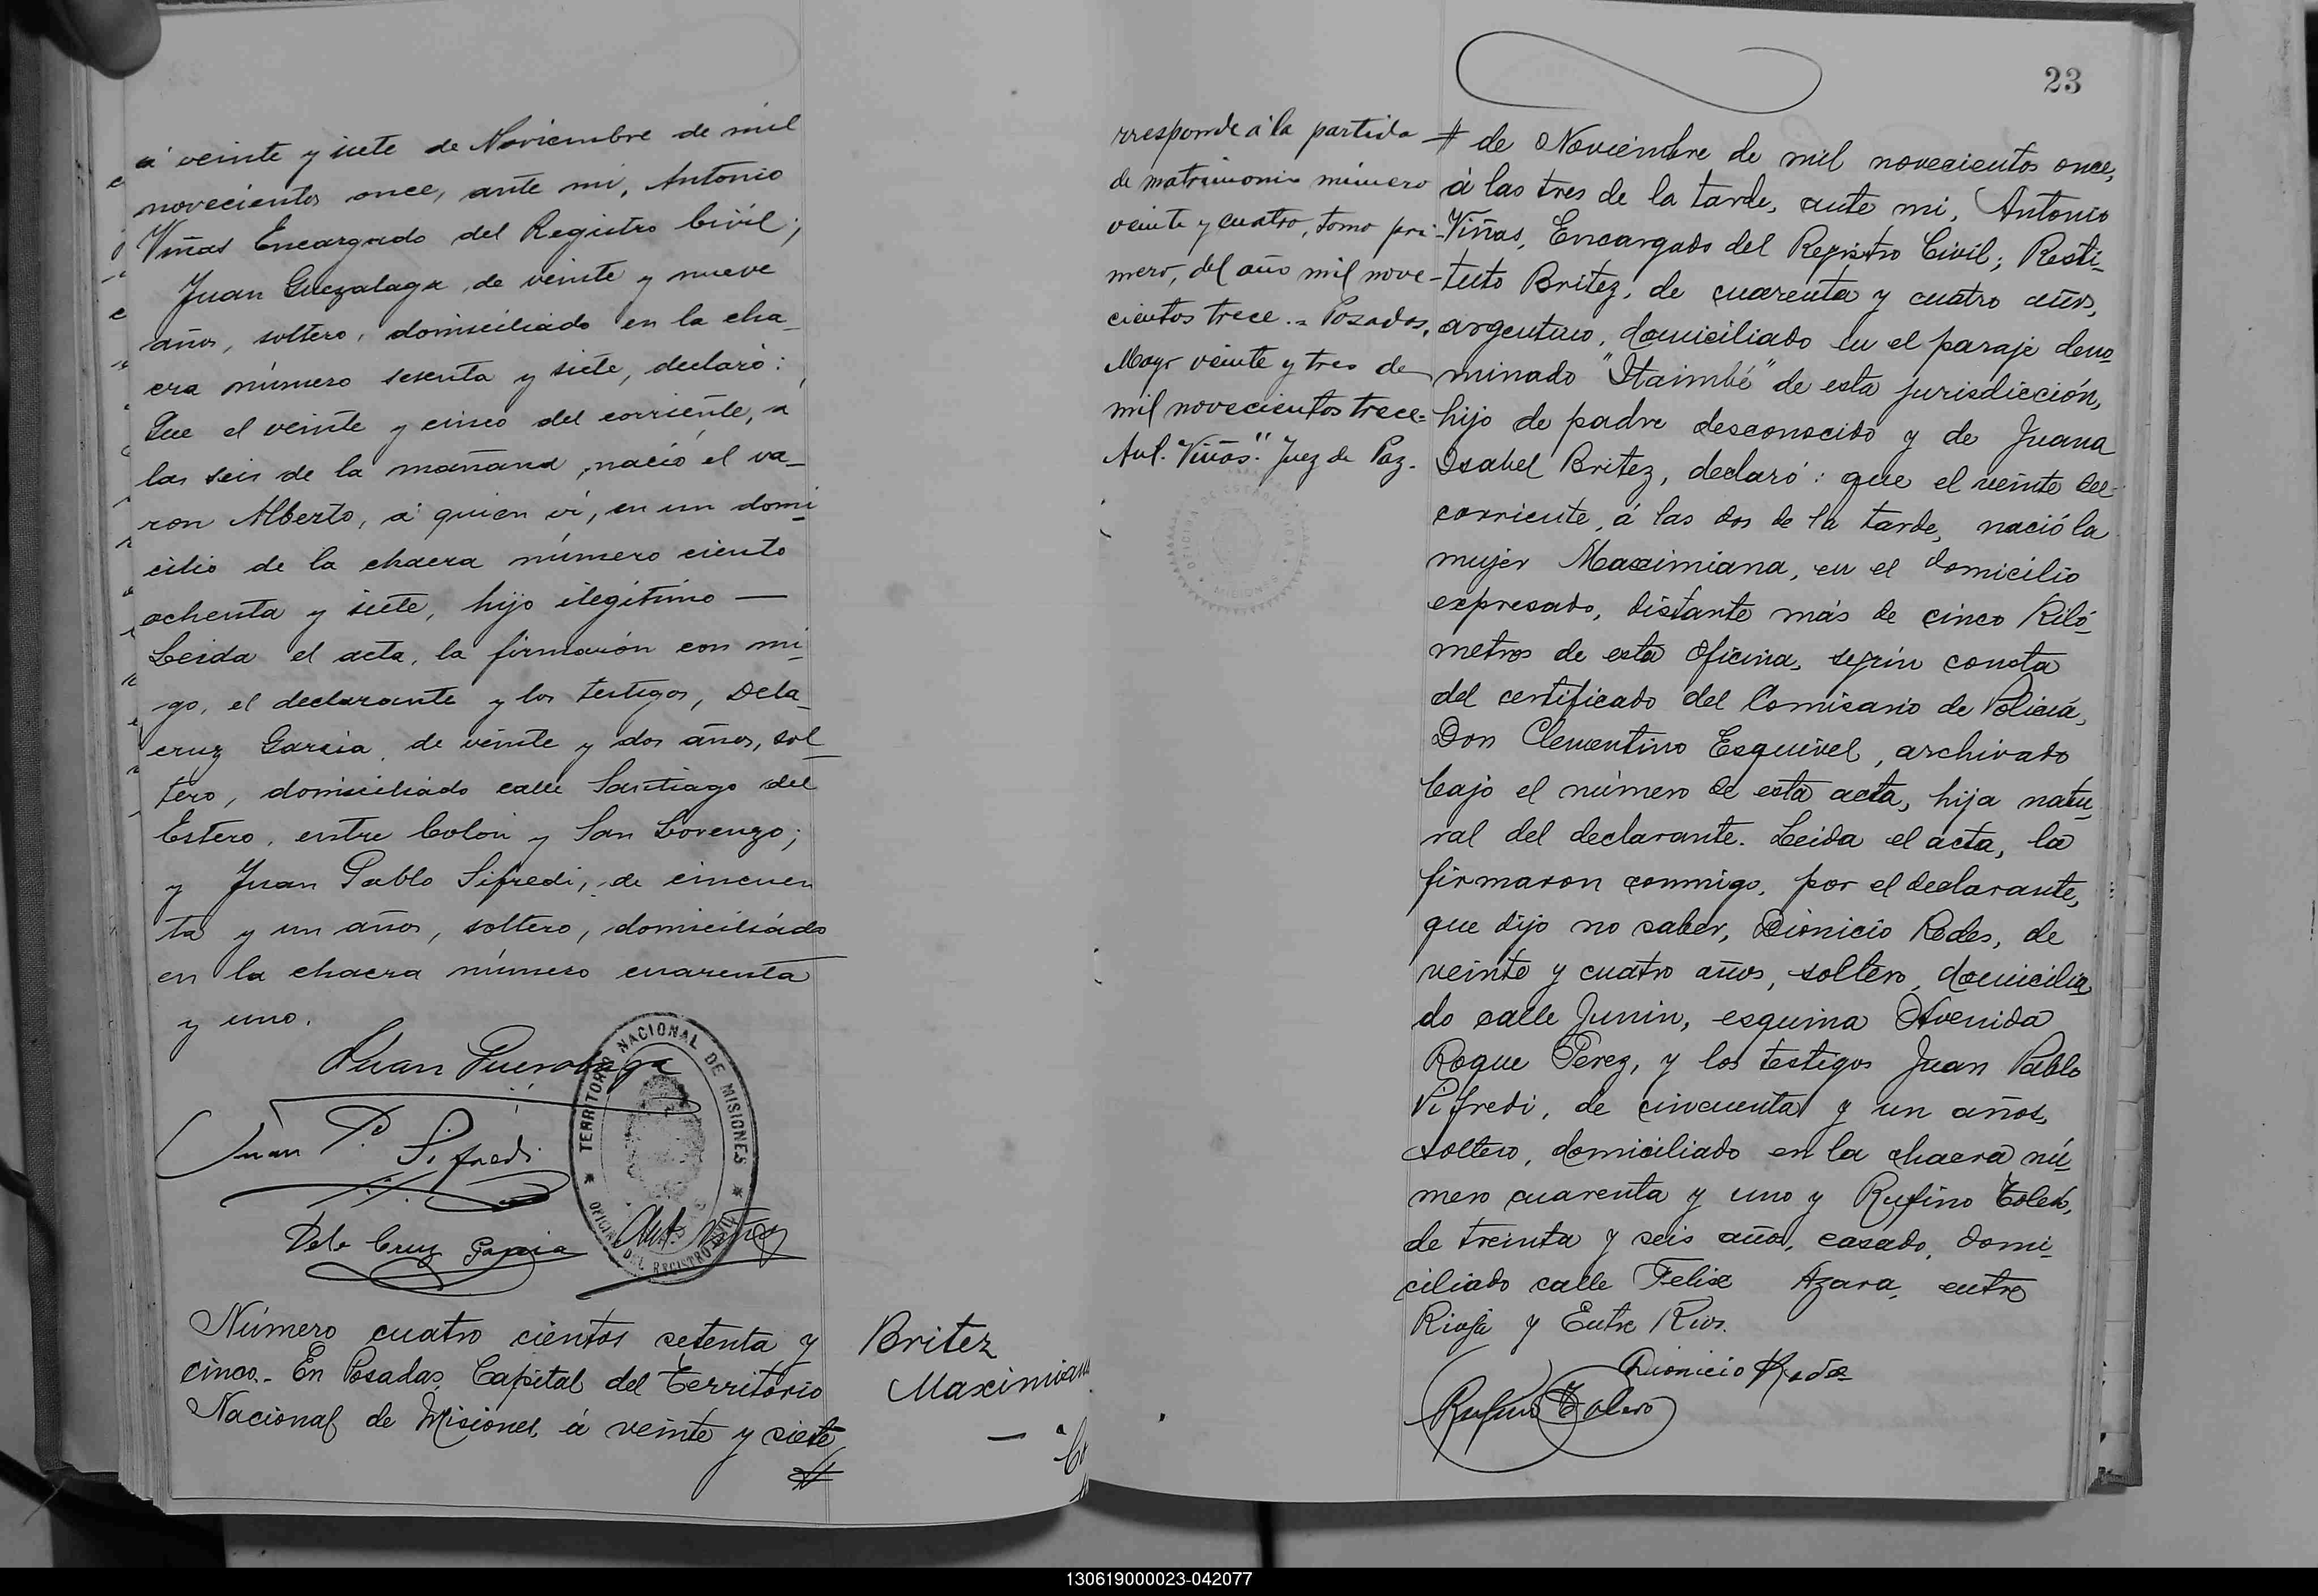 á veinte y siete de Noviembre de mil
novecientos once, ante mi, Antonio
Viñas Encargado del Registro Civil;
Juan Guezalaga, de veinte y nueve
años, soltero, domiciliado en la cha_
cra número sesenta y siete, declaró:
Que el veinte y cinco del corriente, a
las seis de la mañana, nació el va_
ron Alberto, á quien ví, en un domi_
cilio de la chacra número ciento
ochenta y siete, hijo ilegítimo —
Leida el acta, la firmarón con mi_
go, el declarante y los testigos, Dela_
cruz Garcia, de veinte y dos años, sol_
tero, domiciliado calle Santiago del
Estero, entre Colón y San Lorenzo;
y Juan Pablo Sifredi, de cincuen
ta y un años, soltero, domiciliado
en la chacra número cuarenta
y uno.
Juan
TERRITORIO NACIONAL DE MISIONES
OFICINA DEL REGISTRO CIVIL
Juan P. Sifredi
Dela Cruz Garcia
Ant. Viñas
Número cuatro cientos setenta y
cinco.- En Posadas, Capital del Territorio
Nacional de Misiones, á veinte y siete
#
Britez
Maximiana
—
23
rresponde á la partida
de matrimonio número
veinte y cuatro, tomo pri-
mero, del año mil nove-
cientos trece.= Posadas,
Mayo veinte y tres de
mil novecientos trece=
Ant. Viñas." Juez de Paz.
# de Noviembre de mil novecientos once,
á las tres de la tarde, ante mi, Antonio
Viñas, Encargado del Registro Civil; Resti_
tuto Britez, de cuarenta y cuatro años,
argentino, domiciliado en el paraje deno_
minado "Itaimbé" de esta jurisdicción,
hijo de padre desconocido y de Juana
Isabel Britez, declaró: que el veinte del
corriente, á las dos de la tarde, nació la
mujer Maximiana, en el domicilio
expresado, distante más de cinco Kiló_
metros de esta Oficina, según consta
del certificado del Comisario de Policia,
Don Clementino Esquivel, archivado
bajo el número de esta acta, hija natu_
ral del declarante. Leida el acta, la
firmaron conmigo, por el declarante,
que dijo no saber, Dionicio Rodes, de
veinte y cuatro años, soltero, domicilia_
do calle Junin, esquina Avenida
Roque Perez, y los testigos Juan Pablo
Sifredi, de cincuenta y un años,
soltero, domiciliado en la chacra nú_
mero cuarenta y uno y Rufino Toledo,
de treinta y seis años, casado, domi_
ciliado calle Felix Azara, entre
Rioja y Entre Rios.
Dionicio Rodes
Rufino Toledo